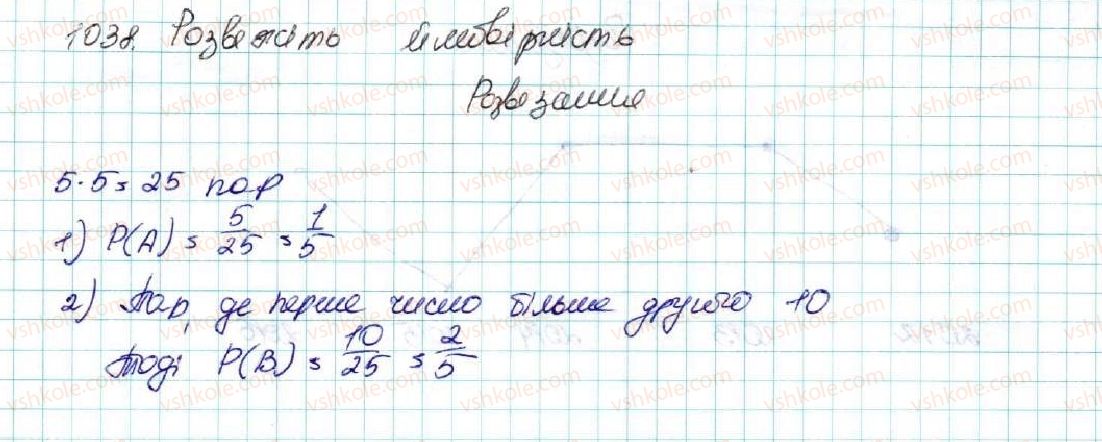 1038. Розвежіть ймовірність
Розвезання
5·5 = 25 пар
1) P(A) = 5/25 = 1/5
2) Пар, де перше число більше другого 10
Тоді P(B) = 10/25 = 2/5